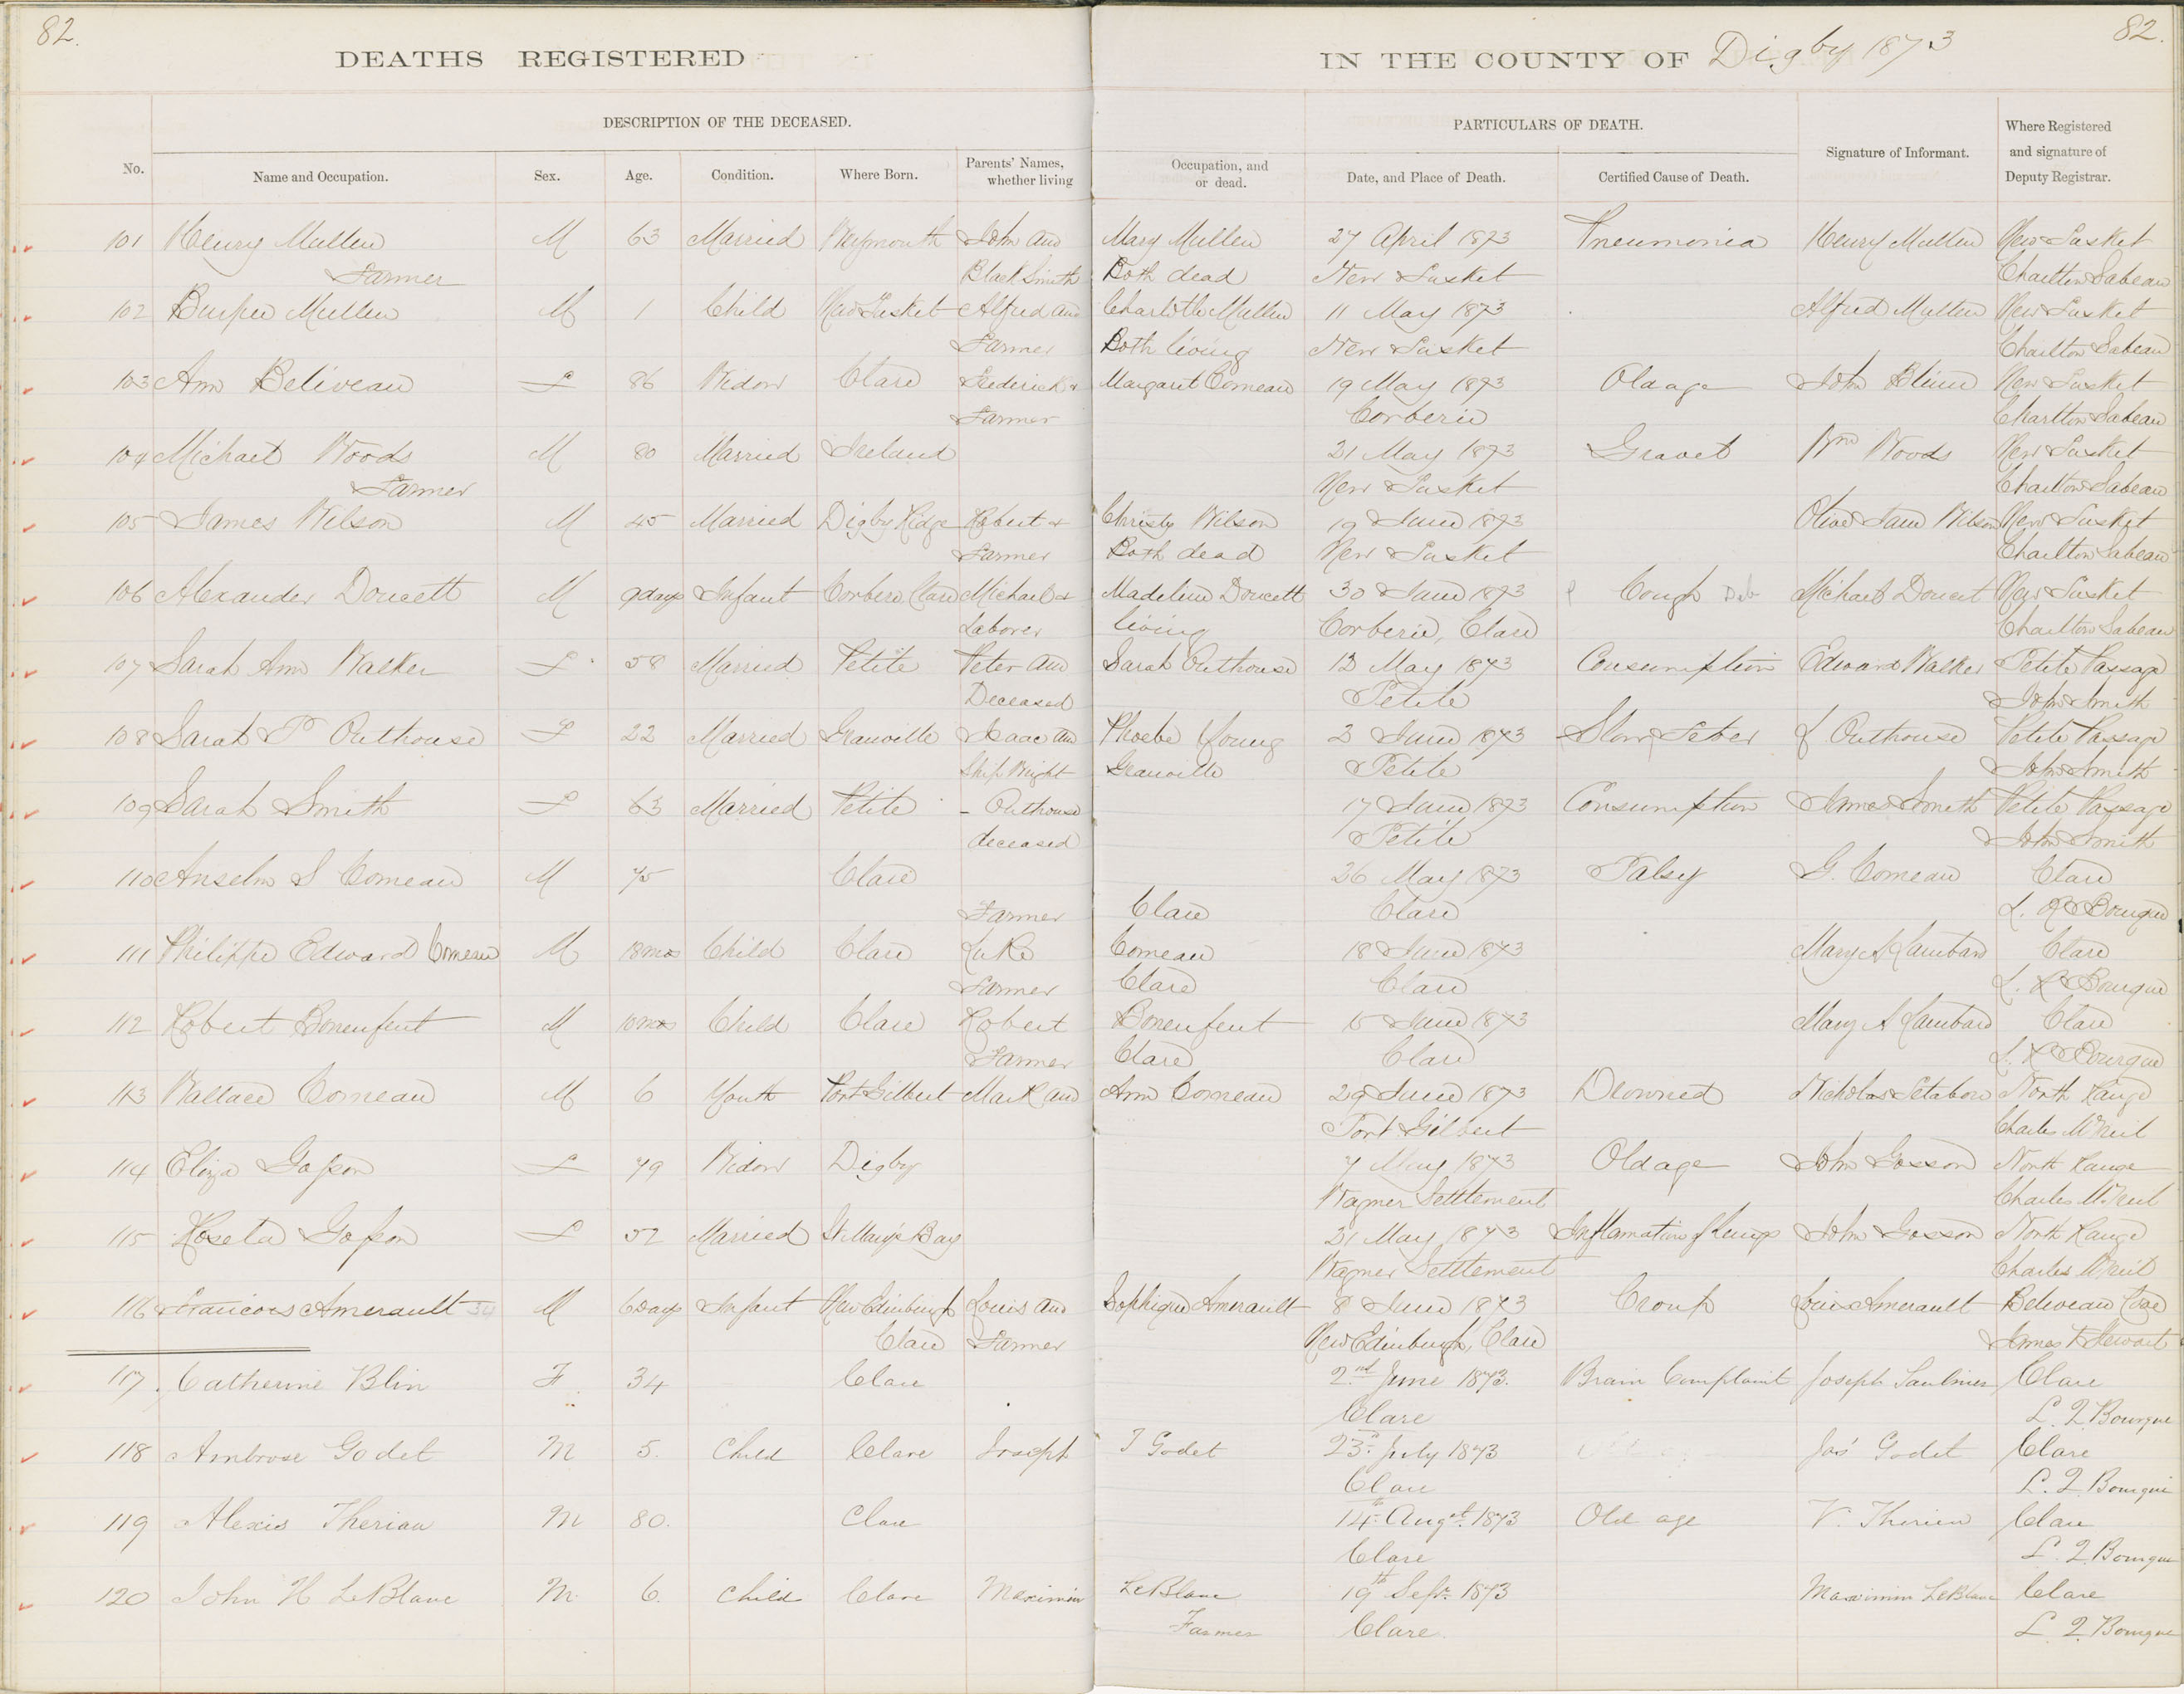 82. 82.
DEATHS REGISTERED IN THE COUNTY OF Digby 1873
DESCRIPTION OF THE DECEASED. PARTICULARS OF DEATH.
No. Name and Occupation. Sex. Age. Condition. Where Born. Parents' Names, whether living Occupation, and or dead. Date, and Place of Death. Certified Cause of Death. Signature of Informant. Where Registered and signature of Deputy Registrar.
101 Henry Mullen M 63 Married Weymouth John and Mary Mullen 27 April 1873 Pneumonia Henry Mullen New Tusket
Farmer Black Smith Both dead New Tusket Charlton Sabean
102 Burpee Mullen M 1 Child New Tusket Alfred and Charlotte Mullen 11 May 1873 Alfred Mullen New Tusket
Farmer Both living New Tusket Charlton Sabean
103 Ann Beliveau F 86 Widow Clare Frederick & Margaret Comeau 19 May 1873 Old age John Blinn New Tusket
Farmer Corberie Charlton Sabean
104 Michael Woods M 80 Married Ireland 21 May 1873 Gravel Wm Woods New Tusket
Farmer New Tusket Charlton Sabean
105 James Wilson M 45 Married Digby Ridge Robert & Christy Wilson 19 June 1873 Olive Jane Wilson New Tusket
Farmer Both dead New Tusket Charlton Sabean
106 Alexander Doucett M 9 days Infant Corberie Clare Michael & Madeline Doucett 30 June 1873 Cough Deb Michael Doucet New Tusket
Laborer living Corberie, Clare Charlton Sabean
107 Sarah Ann Walker F 58 Married Petite Peter and Sarah Outhouse 13 May 1873 Consumption Edward Walker Petite Passage
Deceased Petite John Smith
108 Sarah P Outhouse F 22 Married Granville Isaac and Phoebe Young 2 June 1873 Slow Fever J Outhouse Petite Passage
Ship Wright Granville Petite John Smith
109 Sarah Smith F 63 Married Petite - Outhouse 17 June 1873 Consumption James Smith Petite Passage
deceased Petite John Smith
110 Anselm S Comeau M 75 Clare 26 May 1873 Palsy G. Comeau Clare
Farmer Clare Clare L. Q Bourque
111 Philippe Edward Comeau M 18 mos Child Clare Luke Comeau 18 June 1873 Mary A Lambard Clare
Farmer Clare Clare L. Q Bourque
112 Robert Bonenfent M 10 mos Child Clare Robert Bonenfent 15 June 1873 Mary A Lambard Clare
Farmer Clare Clare L. Q Bourque
113 Wallace Comeau M 6 Youth Port Gilbert Mark and Ann Comeau 29 June 1873 Drowned Nicholas North Range
Port Gilbert Charles McNeil
114 Eliza Gosson F 79 Widow Digby 7 May 1873 Old age John Gosson North Range
Wagner Settlement Charles McNeil
115 Roseta Gosson F 52 Married St Mary's Bay 21 May 1873 Inflamation of Lungs John Gosson North Range
Wagner Settlement Charles McNeil
116 Francois Amerault M 6 days Infant New Edinburgh Louis and Sophique Amerault 8 June 1873 Croup Louis Amerault Beliveau Cove
Clare Farmer New Edinburgh, Clare James F Stewart
117 Catherine Blin F 34 Clare 2nd June 1873. Brain Complaint Joseph Saulnier Clare
Clare L. Q Bourque
118 Ambrose Godet M 5. Child Clare Joseph T Godet 23d July 1873 Jos Godet Clare
Clare L. Q Bourque
119 Alexis Theriau M 80. Clare 14th Augst 1873 Old age V. Theriau Clare
Clare L. Q Bourque
120 John H LeBlanc M. 6. Child Clare Maximin LeBlanc 19th Sepr. 1873 Maximin LeBlanc Clare
Farmer Clare. L. Q. Bourque